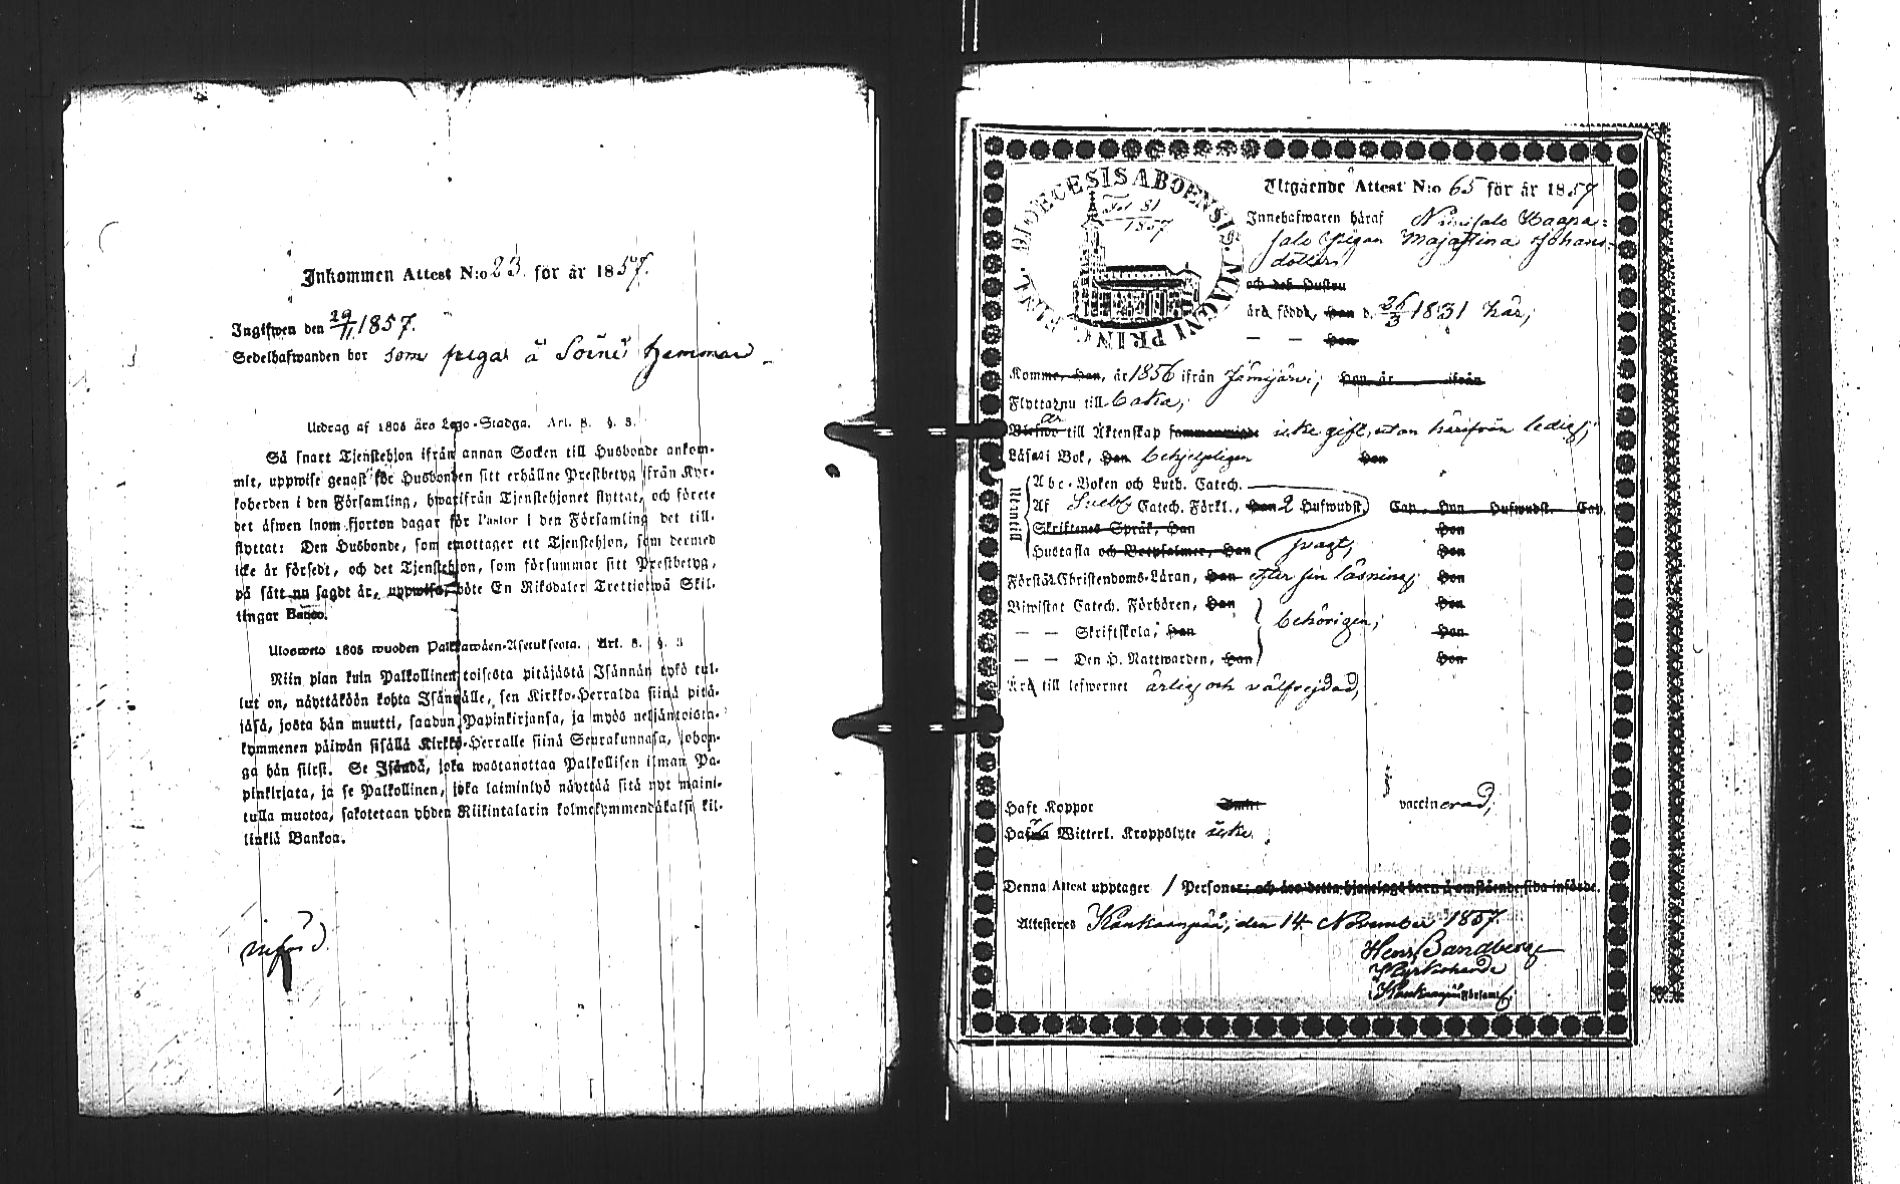 Inkommen Attest N:o 23. för år 1857.
Ingifwen den 29/11 1857.
Sedelhafwanden bor som piga å Soini hemman
Utdrag af 1805 års Lego-Stadga. Art. 8. §. 3.
Så snart Tjenstehjon ifrån annan Socken till Husbonde ankom-
mit, uppwise genast för Husbonden sitt erhållne Prestbetyg ifrån Kyr-
koherden i den Församling, hwarifrån Tjenstehjonet flyttat, och förete
det äfwen inom fjorton dagar för Pastor i den Församling det till-
flyttat: Den Husbonde, som emottager ett Tjenstehjon, som dermed
icke är försedt, och det Tjenstehjon, som försummar sitt Prestbetyg,
på sätt nu sagdt är, uppwisa, böte En Riksdaler Trettiotwå Skil-
lingar Banco.
Ulosweto 1805 wuoden Palkkawäen-Asetuksesta. Art. 8. §. 3
Niin pian kuin Palkollinen toisesta pitäjästä Isännän tykö tul-
lut on, näyttäköön kohta Isännälle, sen Kirkko-Herralda siinä pitä-
jäsä, josta hän muutti, saadun Papinkirjansa, ja myös neljäntoista-
kymmenen päiwän sisällä Kirkko-Herralle siinä Seurakunnasa, johon-
ga hän siirsi. Se Isändä, joka wastanottaa Palkollisen ilman Pa-
pinkirjata, ja se Palkollinen, joka laiminlyö näyttää sitä nyt maini-
tulla muotoa, sakotetaan yhden Riikintalarin kolmekymmendäkaksi kil-
linkiä Bankoa.
införd.
DIOECESIS ABOENSIS. MAGNI PRINC. FINL.
Fol 81
1857
Utgående Attest N:o 65 för år 1857
Innehafwaren häraf Niinisalo Haapa-
salo Pigan Maja Stina Johans-
dotter
och des Hustru
är född, Hon d. 26/3 1831 här;
— — Hon
Komme, Hon, år 1856 ifrån Jämijärvi; Hon år ifrån
Flyttar nu till baka;
är till Äktenskap icke gift, utan härifrån ledig;
Läser i Bok, Hon behjelpligen Hon
Utantill
Abc-Boken och Luth. Catech.
Af Sveb. Catech. Förkl., Hon 2 Hufwudst. Cap. Hon Hufwudst. Cap.
Skriftenes Språk, Hon Hon
Hustafla och Botpsalmer, Hon svagt; Hon
Förstår Christendoms-Läran, Hon efter sin läsning; Hon
Biwistat Catech. Förhören, Hon behörigen; Hon
— — Skriftskola, Hon Hon
— — Den H. Nattwarden, Hon Hon
Är till lefwernet ärlig och välfrejdad;
Haft Koppor vaccinerad;
Har Witterl. Kroppslyte icke.
Denna Attest upptager 1 Person; och äro detta hjonelags barn å omstående sida införde.
Attesteres Kankaanpää, den 14 November 1857.
Henr. Sandberg
Kyrkoherde
i Kankaanpää Församl.